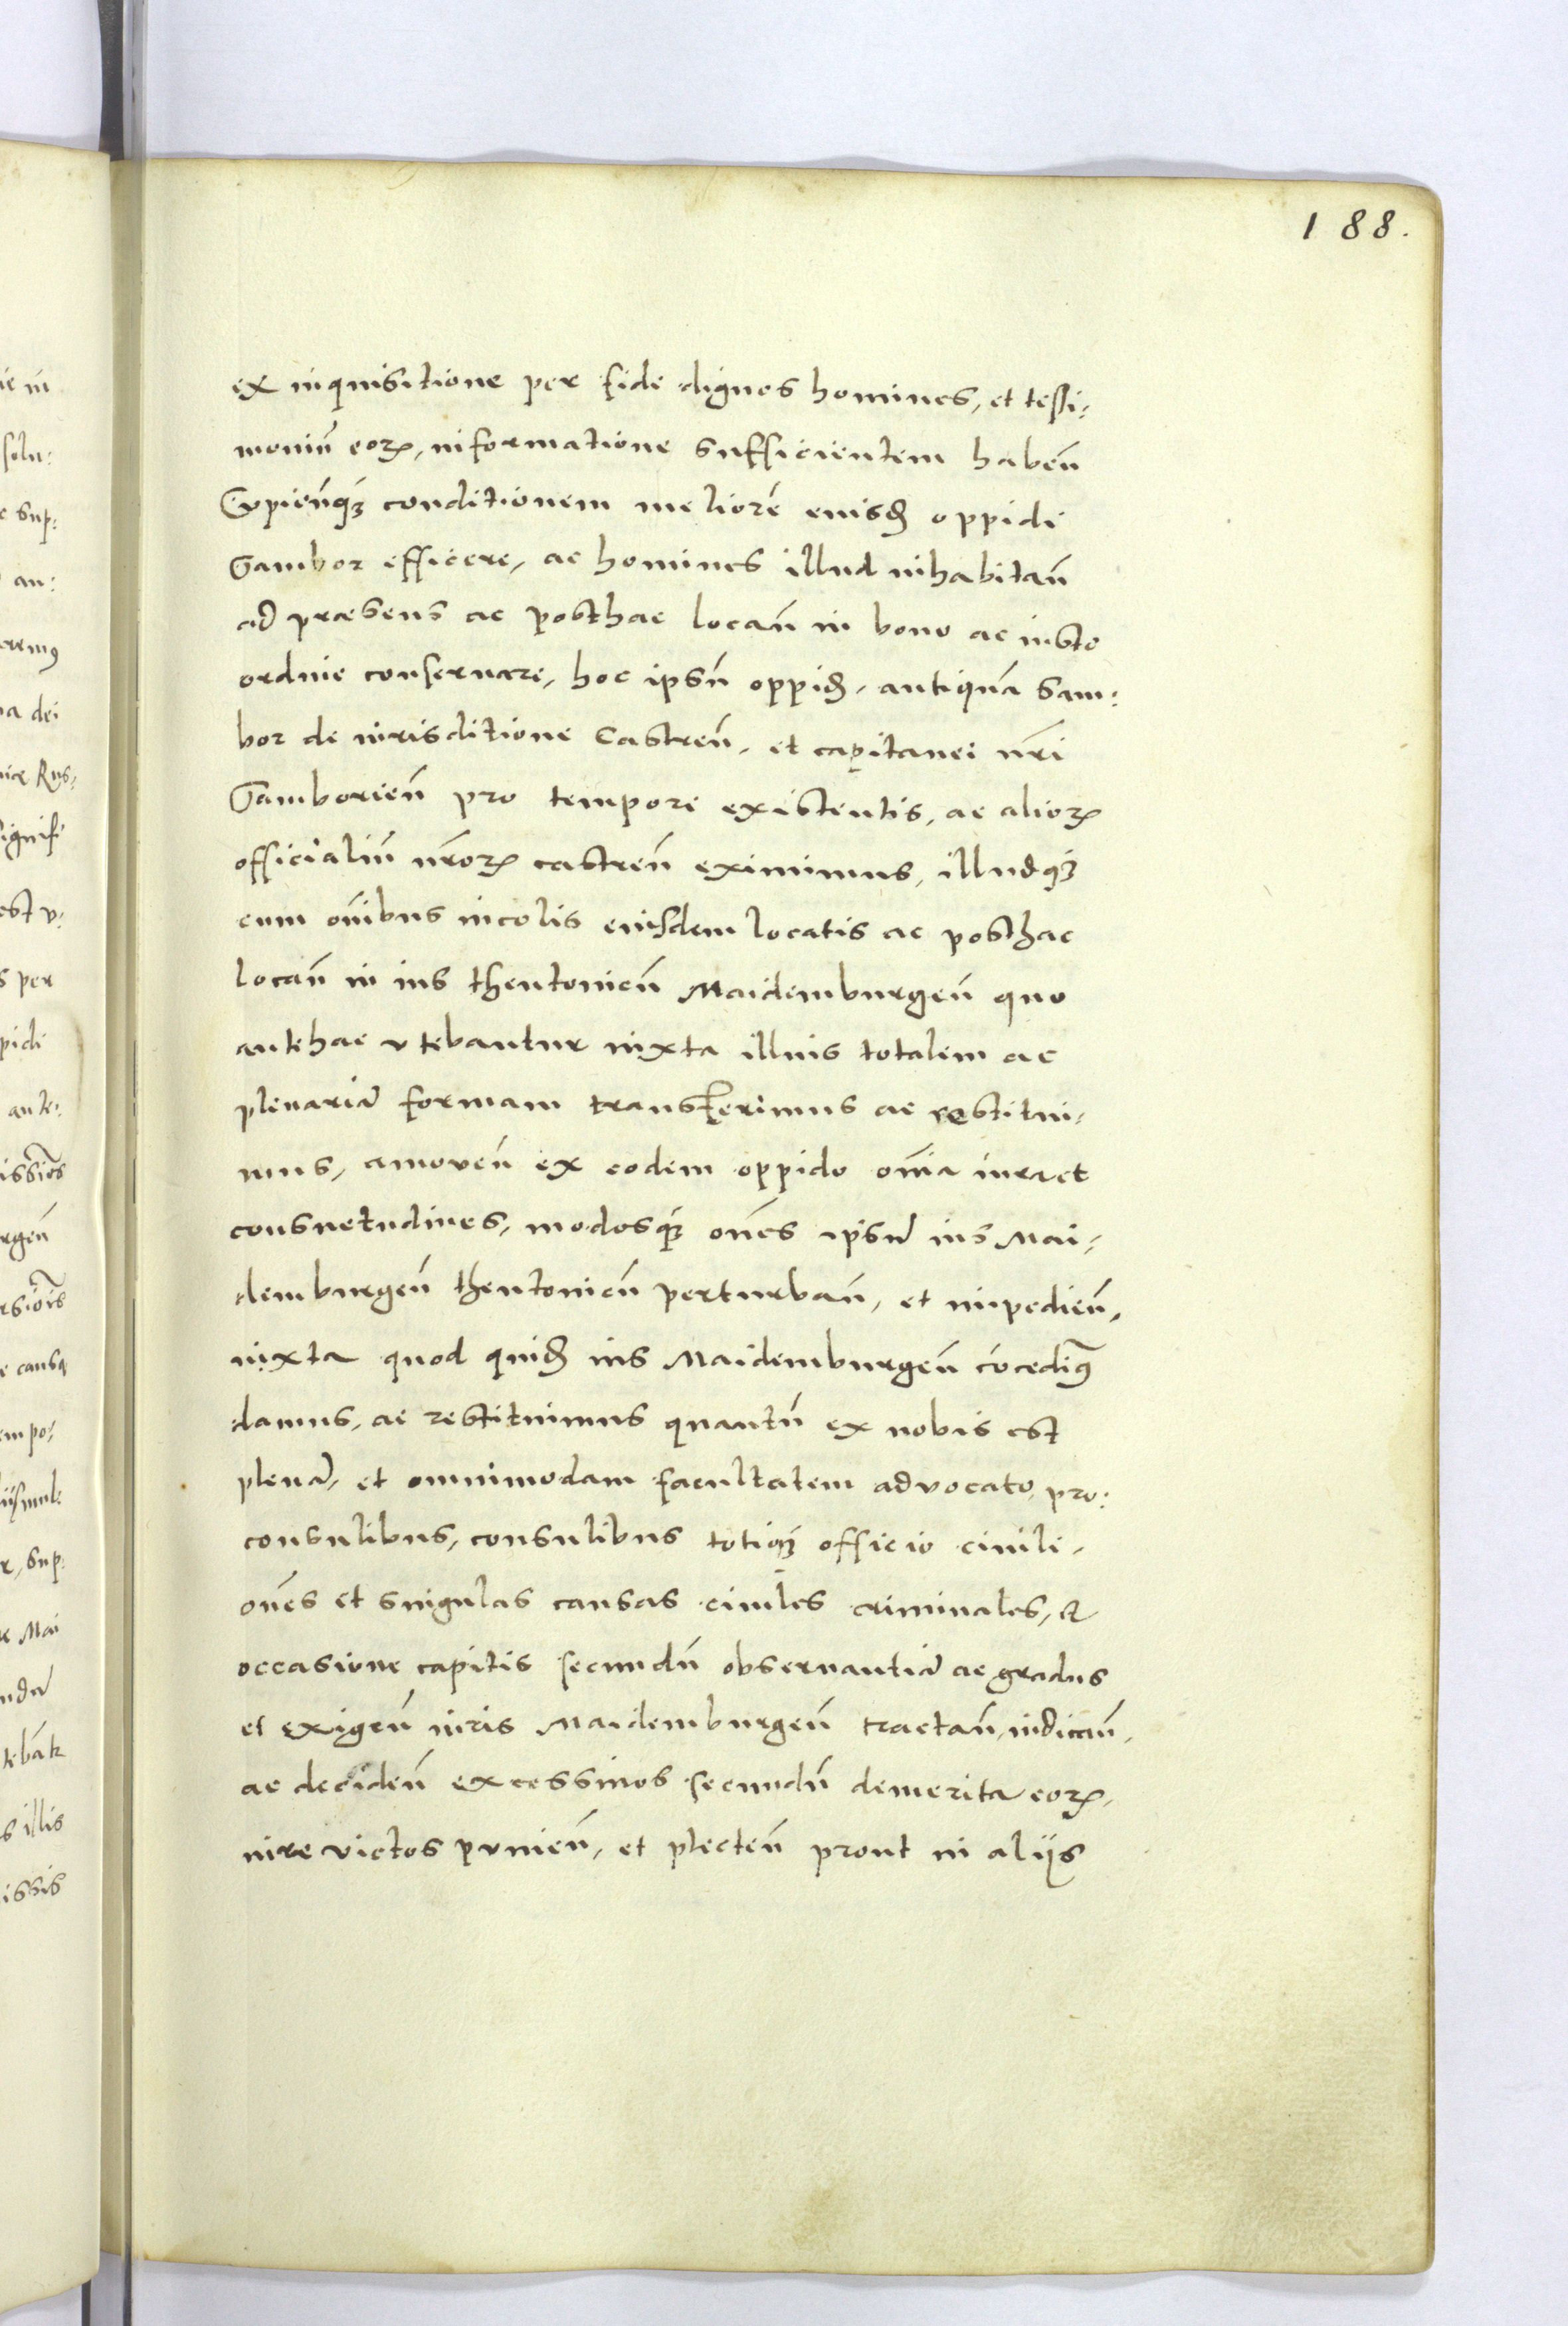 188.
ex inquisitione per fide dignos homines, et testi:
moniū eoꝝ, informatione sufficientem habeñ
Cupieñqꝫ conditionem meliorē eiusđ oppidi
Sambor efficere, ac homines illud inhabitañ
ad præsens ac posthac locañ in bono ac iusto
ordine conseruare, hoc ipsū oppiđ, antiquā Sam:
bor de iurisditione Castreñ, et capitanei nr̄i
Samborieñ pro tempore existentis, ac alioꝝ
officialiū nr̄oꝝ castreñ eximimus, illudqꝫ
cum oībus incolis eiusdem locatis ac posthac
locañ in ius theutonicū Maidemburgeñ quo
antehac vtebantur iuxta illius totalem ac
plenariā formam transferimus ac restitui,
mus, amoueñ ex eodem oppido oīa iura et
consuetudines, modosqꝫ oēs ipsū ius Mai,
demburgeñ theutonicū perturbañ, et impedieñ,
iuxta quod quiđ ius Maidemburgeñ cōcedimꝰ
damus, ac restituimus quantū ex nobis est
plenā, et omnimodam facultatem aduocato, pro:
consulibus, consulibus totiqꝫ officio ciuili,
oēs et singulas causas ciuiles criminales, et
occasione capitis secundū obseruantiā ac gradus
et exigeñ iuris Maidemburgeñ tractañ, iudicañ,
ac decideñ excessiuos secundū demerita eoꝝ,
iure victos punieñ, et plecteñ prout in aliis